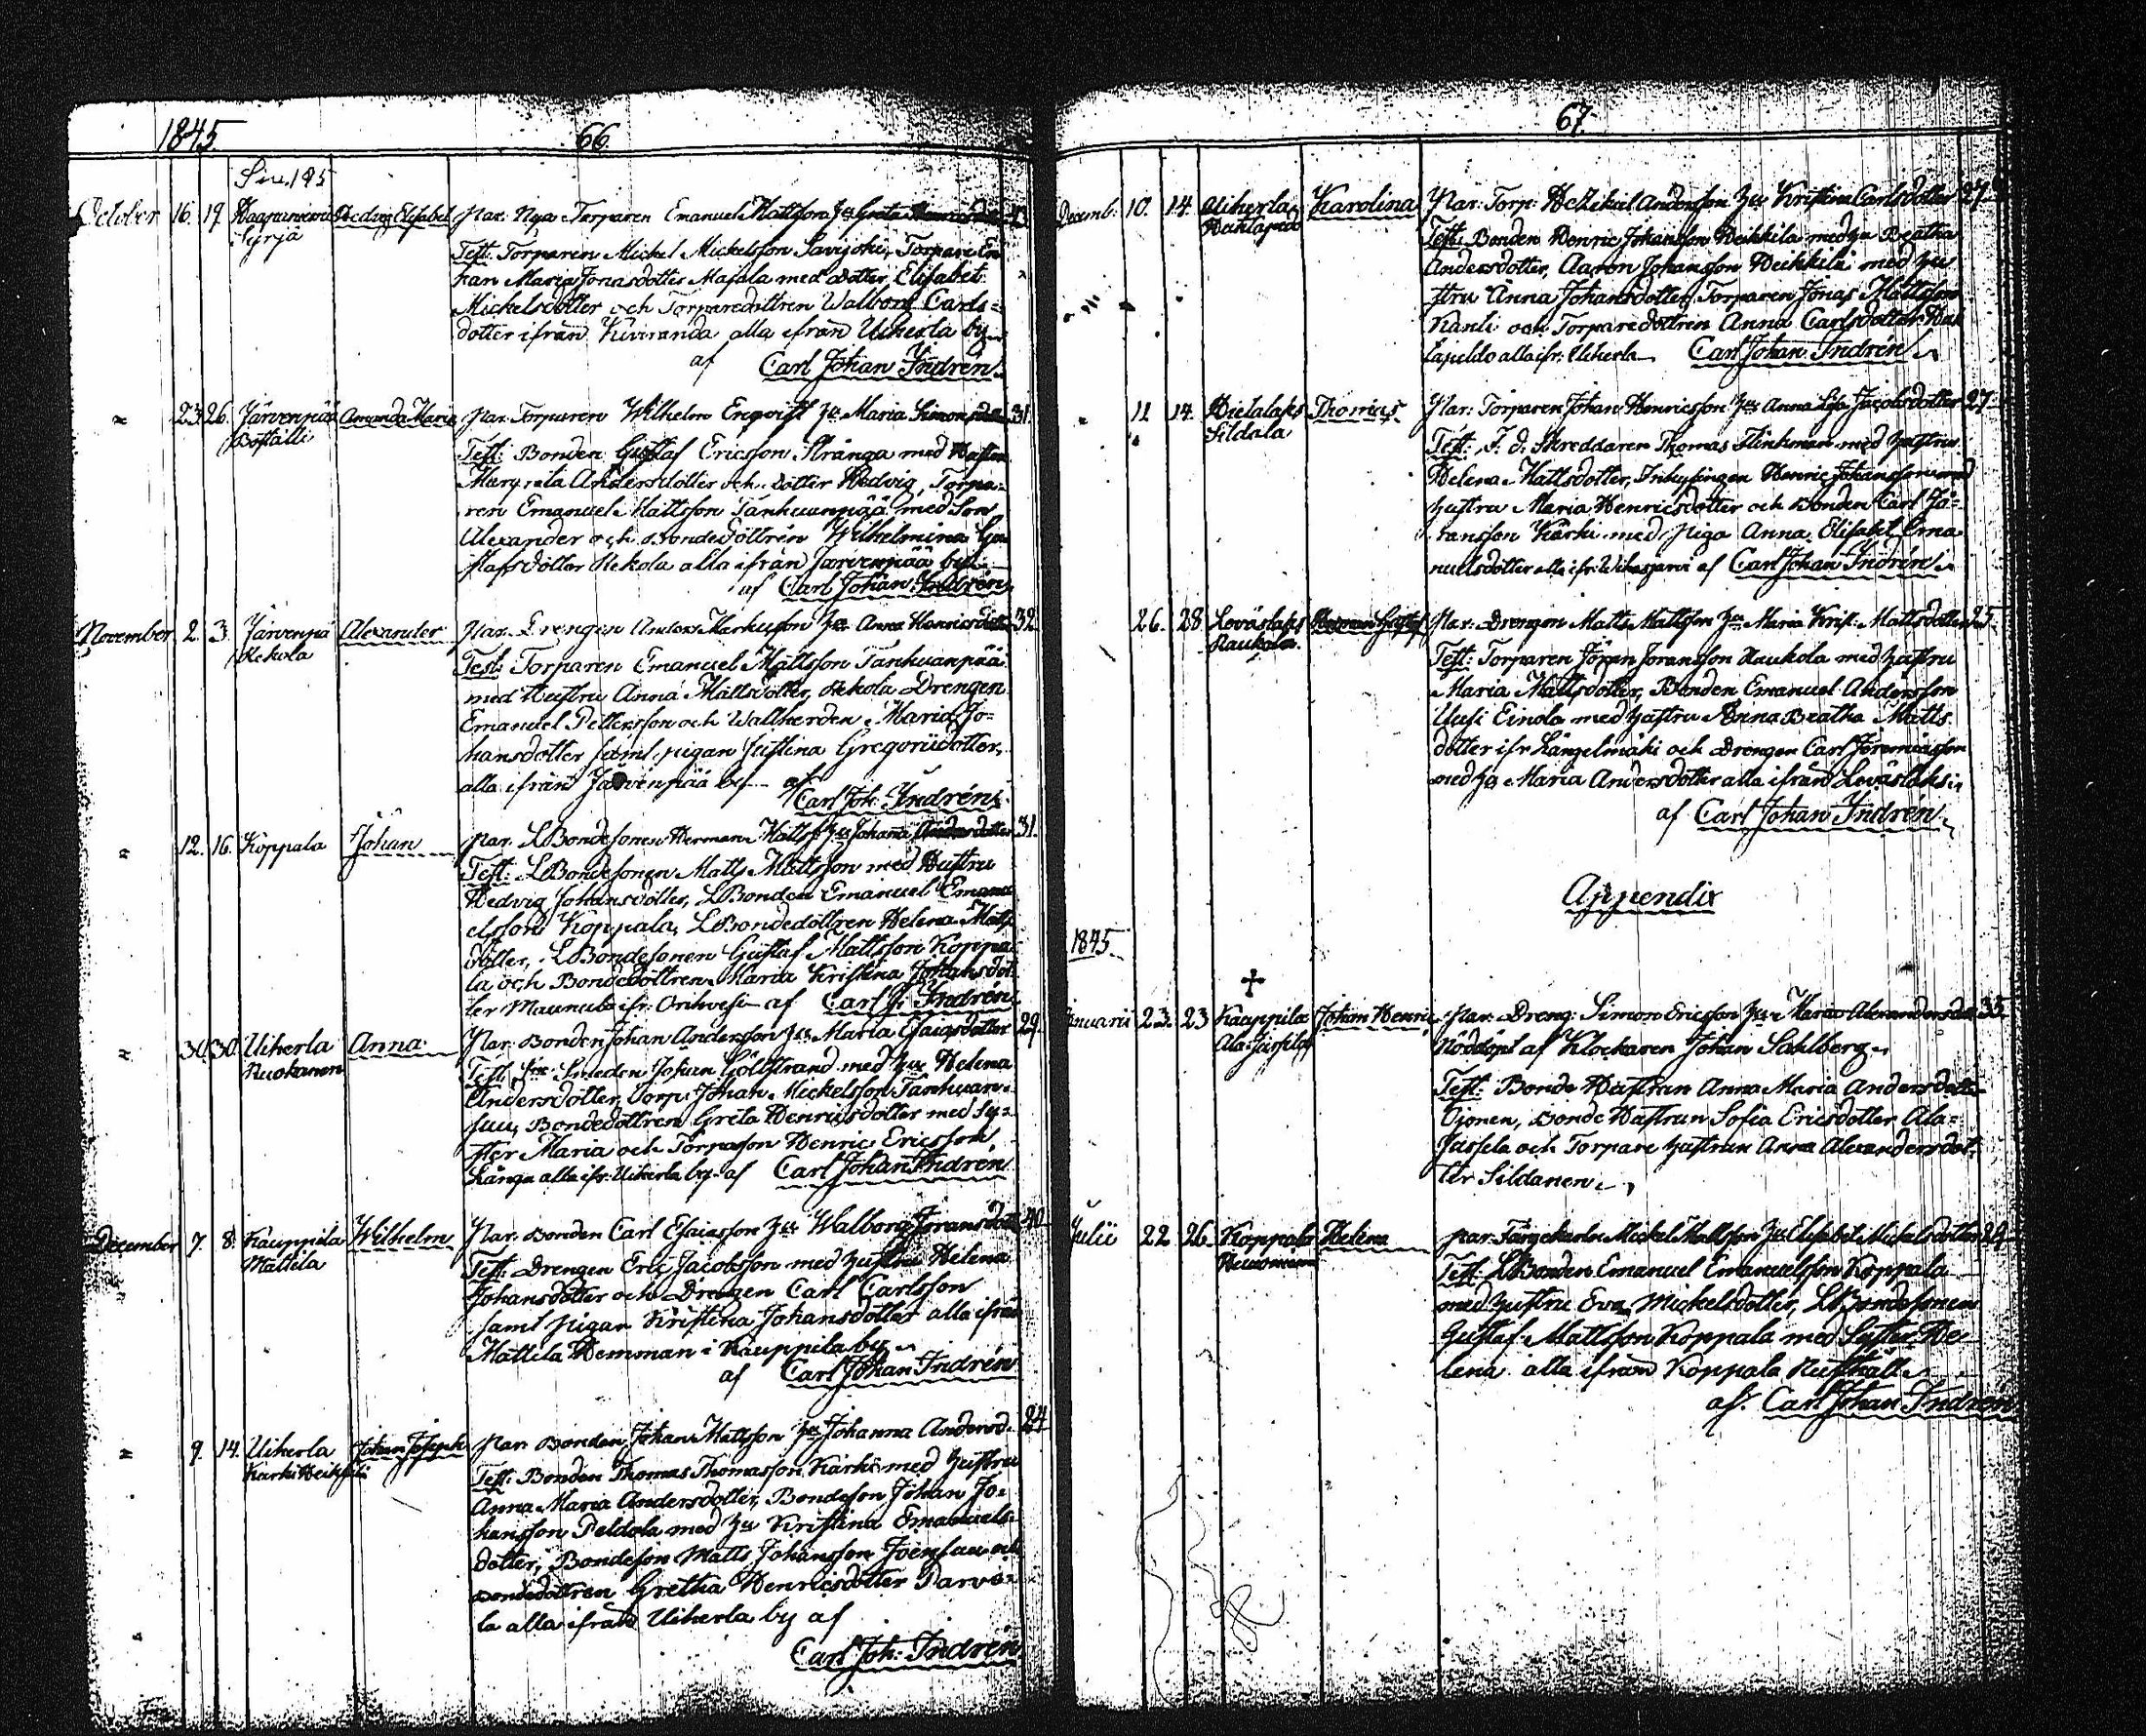 1845. 66.
October 16. 19. Syrjä Hedvig Elisabet Par. Nya Torparen Emanuel Mattsson Hu Greta
Test: Torparen Mickel Mickelsson Savijoki, Torpare En
kan Maria Jonasdotter Majala med dotter Elisabet
Mickelsdotter och Torparedottren Walborg Carls=
dotter ifrån Kiviranda alla ifrån Uiherla by
af Carl Johan Indrén.
" 23. 26. Järvenpää Amanda Maria Par. Torparen Wilhelm Enqvist Hu Maria 31.
Boställe
Test: Bonden Gustaf Ericsson Stränga med Hustru
Margreta Andersdotter och dotter Hedvig, Torpa=
ren Emanuel Mattsson Tanhuanpää med Son
Alexander och Bondedottren Wilhelmina Gu
stafsdotter Rekola alla ifrån Järvenpää by
af Carl Johan Indrén
November 2. 3. Järvenpä Alexander Par. Drengen Anders Markusson Hu Anna Henricsdotter 32.
Rekola
Test: Torparen Emanuel Mattsson Tanhuanpää
med Hustru Anna Mattsdotter, Rekola Drengen
Emanuel Pettersson och Wallherden Maria Jo=
hansdotter samt pigan Justina Gregoriidotter,
alla ifrån Järvenpää by af
Carl Joh. Indrén.
" 12. 16. Koppala Johan Par. LBondesonen Herman Mattss. Hu Johanna Andersdotter 31.
Test: LBondesonen Matts Mattsson med Hustru
Hedvig Johansdotter, LBonden Emanuel Emanu
elsson Koppala, LBondedottren Helena Matts
dotter, LBondesonen Gustaf Mattsson Koppa=
la och Bondedottren Maria Kristina Johansdot
ter Maunula ifr. Orihvesi af Carl J. Indrén
" 30. 30. Uiherla Anna Par. Bonden Johan Andersson Hu Maria Esaiasdotter 29.
Ruokanen
Test: Smeden Johan Göllstrand med Hu Helena
Andersdotter, Torp. Johan Mickelsson Tanhuan=
suu, Bondedottren Greta Henricsdotter med Sy=
ster Maria och Torpason Henric Ericsson,
Långa alla ifr. Uiherla by af Carl Johan Indrén
December 7. 8. Kauppila Wilhelm Par. Bonden Carl Esaiasson Hu Walborg Joransdott 40
Mattila
Test: Drengen Eric Jacobsson med Hustru Helena
Johansdotter och Drengen Carl Carlsson
samt pigan Kristina Johansdotter alla ifrån
Mattila Hemman i Kauppila by
af Carl Johan Indrén
" 9. 14. Uiherla Johan Joseph Par. Bonden Johan Mattsson Hu Johanna Andersd. 24
Karki Heikkilä
Test: Bonden Thomas Thomasson Karki med Hustru
Anna Maria Andersdotter, Bondeson Johan Jo=
hansson Peldola med Hu Kristina Emanuels=
dotter, Bondeson Matts Johansson Joensuu och
Bondedottren Gretha Henricsdotter Parvo=
la alla ifrån Uiherla by af
Carl Joh: Indrén
67.
Decemb. 10. 14. Uiherla Karolina Par: Torp: Mickel Andersson Hu Kristina Carlsdotter 27.
Test: Bonden Henric Johansson Heikkilä med Hu Beatha
Andersdotter, Aaron Johansson Heikkilä med Hu
stru Anna Johansdotter, Torparen Jonas Mattsson
Kanli och Torparedottren Anna Carlsdotter
alla ifr: Uiherla Carl Johan Indrén
" 11 14. Hietalaks Thomas Par: Torparen Johan Henricsson Hu Anna Lisa Jacobsdotter 27.
Sildala
Test: F. d. Skreddaren Thomas Flinkman med Hustru
Helena Mattsdotter, Inhysingen Henric Johansson med
Hustru Maria Henricsdotter och Bonden Carl Jo=
hansson Karki med piga Anna Elisabet Ema
nuelsdotter alla ifr. af Carl Johan Indrén
26. 28. Leväslaks Herman Gustaf Par: Drengen Matts Mattsson Hu Maria Krist. Mattsdotter 25.
Raukola
Test: Torparen Joran Joransson Raukola med Hustru
Maria Mattsdotter, Bonden Emanuel Andersson
Uusi Einola med Hustru Anna Beatha Matts
dotter ifr Längelmäki och Drengen Carl Jeremiasson
med Hu Maria Andersdotter alla ifrån Leväslaks
af Carl Johan Indrén
Appendix
1845.
Januarii 23. 23 Kauppila Johan Henric Par. Dreng: Simon Ericsson Hu Maria Alexandersdo 35
Nöddöpt af Klockaren Johan Sahlberg
Test: Bonde Hustrun Anna Maria Andersdotter
Ojonen, Bonde Hustrun Sofia Ericsdotter Ala=
Jussila och Torpare Hustrun Anna Alexandersdot=
ter Sildanen
Julii 22 26. Koppala Helena Par. Mickel Mattsson Hu Elisabet Mickelsdotter 29
Test: LBonden Emanuel Emanuelsson Koppala
med Hustru Eva Mickelsdotter, LBondesonen
Gustaf Mattsson Koppala med Syster He=
lena alla ifrån Koppala Rusthåll
af: Carl Johan Indrén